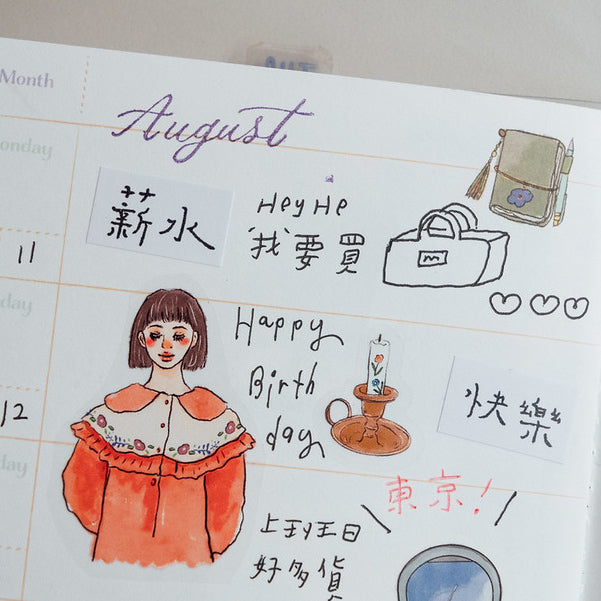 Month
August
onday
薪水
HeyHe
我要買
m
11
day
Happy
Birth
day
快樂
12
day
東京!
上班日
好多貨